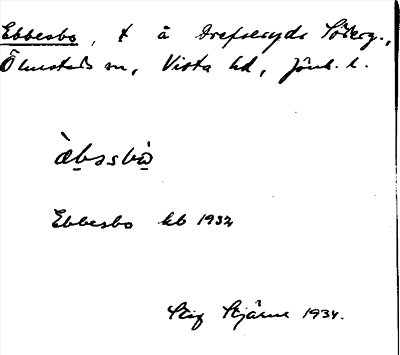 Ebbesbo, t å Drefseryds Söderg.,
Ölmstads sn, Vista hd, Jönk. l.
æ̀bɜsbò
Ebbesbo kb 1932
Stig Stjärne 1934.